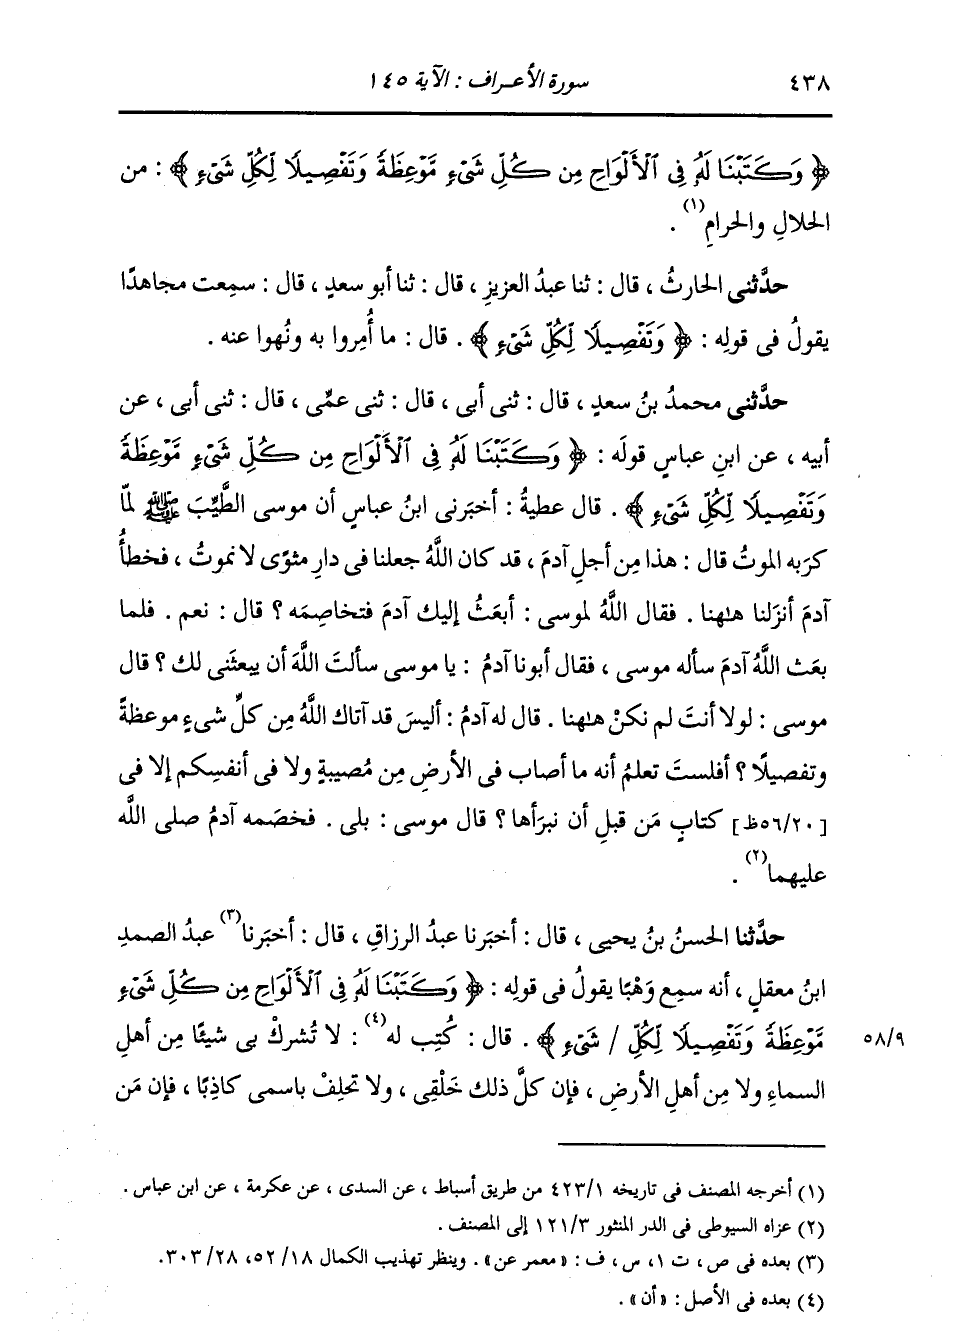 ٤٣٨ سورة الأعراف : الآية ١٤٥
﴿ وَكَتَبْنَا لَهُ فِى ٱلْأَلْوَاحِ مِن كُلِّ شَىْءٍ مَّوْعِظَةً وَتَفْصِيلًا لِّكُلِّ شَىْءٍ ﴾ : من
الحلالِ والحرامِ(١) .
حدَّثنى الحارثُ ، قال : ثنا عبدُ العزيزِ ، قال : ثنا أبو سعدٍ ، قال : سمِعت مجاهدًا
يقولُ فى قولِه : ﴿ وَتَفْصِيلًا لِّكُلِّ شَىْءٍ ﴾ . قال : ما أُمِروا به ونُهوا عنه .
حدَّثنى محمدُ بنُ سعدٍ ، قال : ثنى أبى ، قال : ثنى عمِّى ، قال : ثنى أبى ، عن
أبيه ، عن ابنِ عباسٍ قولَه : ﴿ وَكَتَبْنَا لَهُ فِى ٱلْأَلْوَاحِ مِن كُلِّ شَىْءٍ مَّوْعِظَةً
وَتَفْصِيلًا لِّكُلِّ شَىْءٍ ﴾ . قال عطيةُ : أخبَرنى ابنُ عباسٍ أن موسى الطَّيِّبَ ﷺ لمّا
كرَبه الموتُ قال : هذا مِن أجلِ آدمَ ، قد كان اللَّهُ جعلنا فى دارِ مثوًى لا نموتُ ، فخطأُ
آدمَ أنزَلنا هٰهنا . فقال اللَّهُ لموسى : أبعَثُ إليك آدمَ فتخاصِمَه ؟ قال : نعم . فلما
بعَث اللَّهُ آدمَ سأله موسى ، فقال أبونا آدمُ : يا موسى سألتَ اللَّهَ أن يبعثَنى لك ؟ قال
موسى : لولا أنتَ لم نكنْ هٰهنا . قال له آدمُ : أليسَ قد آتاك اللَّهُ مِن كلِّ شىءٍ موعظةً
وتفصيلًا ؟ أفلستَ تعلمُ أنه ما أصاب فى الأرضِ مِن مُصيبةٍ ولا فى أنفسِكم إلا فى
[٥٦/٢٠ظ] كتابٍ مَن قبلِ أن نبرَأها ؟ قال موسى : بلى . فخصَمه آدمُ صلى اللَّه
عليهما(٢) .
حدَّثنا الحسنُ بنُ يحيى ، قال : أخبَرنا عبدُ الرزاقِ ، قال : أخبَرنا(٣) عبدُ الصمدِ
ابنُ معقلٍ ، أنه سمِع وَهْبًا يقولُ فى قولِه : ﴿ وَكَتَبْنَا لَهُ فِى ٱلْأَلْوَاحِ مِن كُلِّ شَىْءٍ
مَّوْعِظَةً وَتَفْصِيلًا لِّكُلِّ / شَىْءٍ ﴾ . قال : كُتِب له(٤) : لا تُشركْ بى شيئًا مِن أهلِ ٥٨/٩
السماءِ ولا مِن أهلِ الأرضِ ، فإن كلَّ ذلك خَلْقِى ، ولا تحلِفْ باسمى كاذِبًا ، فإن مَن
(١) أخرجه المصنف فى تاريخه ٤٢٣/١ من طريق أسباط ، عن السدى ، عن عكرمة ، عن ابن عباس .
(٢) عزاه السيوطى فى الدر المنثور ١٢١/٣ إلى المصنف .
(٣) بعده فى ص ، ت ١، س ، ف : «معمر عن» . وينظر تهذيب الكمال ٥٢/١٨، ٣٠٣/٢٨.
(٤) بعده فى الأصل : «أن» .